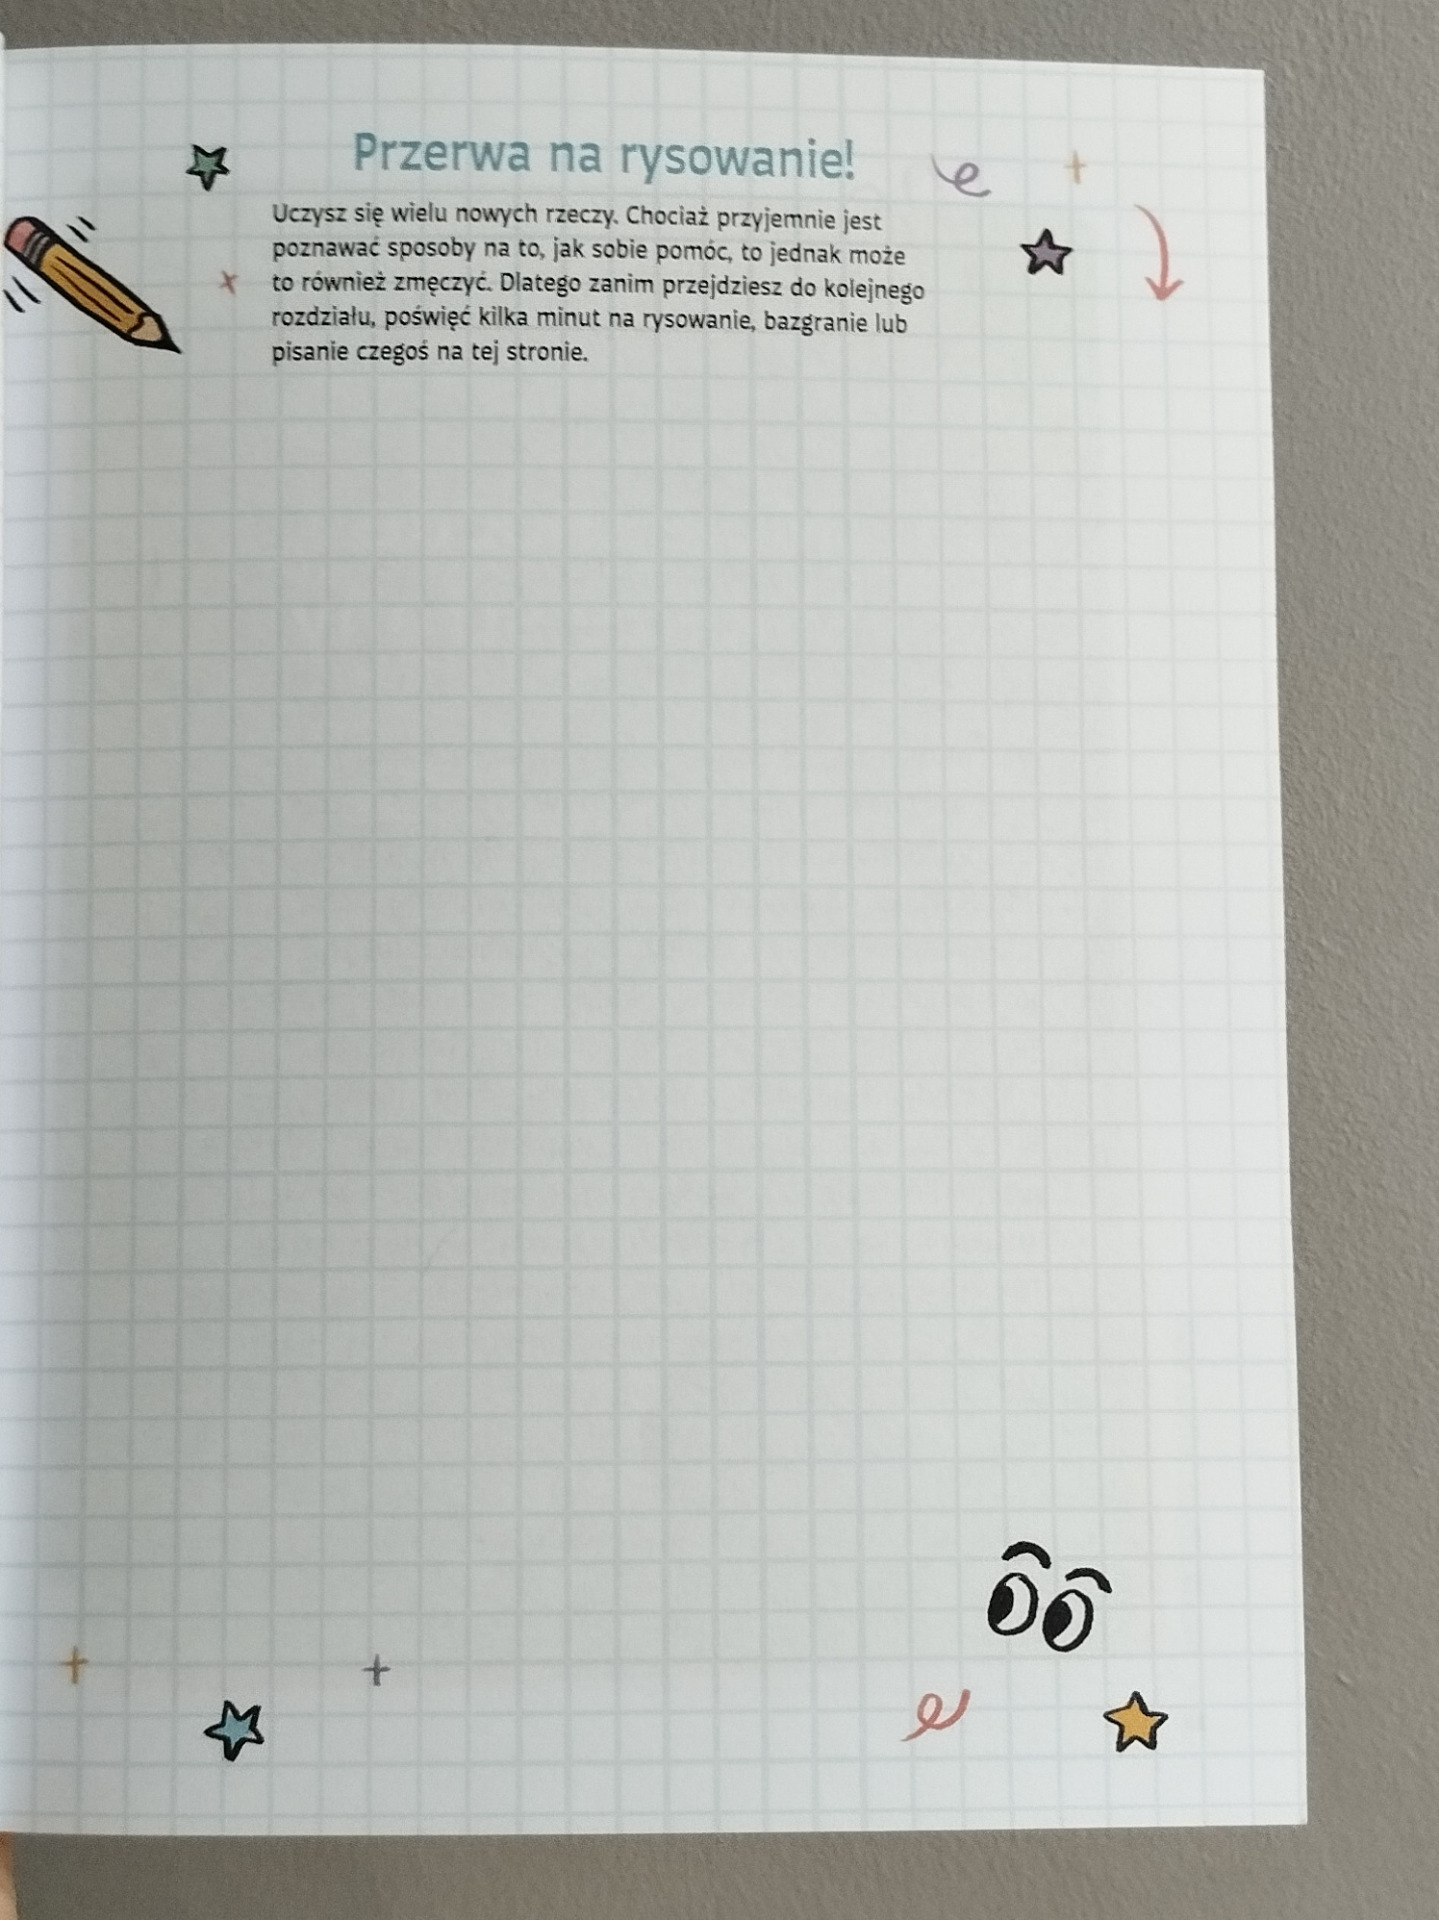 Przerwa na rysowanie!
Uczysz się wielu nowych rzeczy. Chociaż przyjemnie jest
poznawać sposoby na to, jak sobie pomóc, to jednak może
to również zmęczyć. Dlatego zanim przejdziesz do kolejnego
rozdziału, poświęć kilka minut na rysowanie, bazgranie lub
pisanie czegoś na tej stronie.